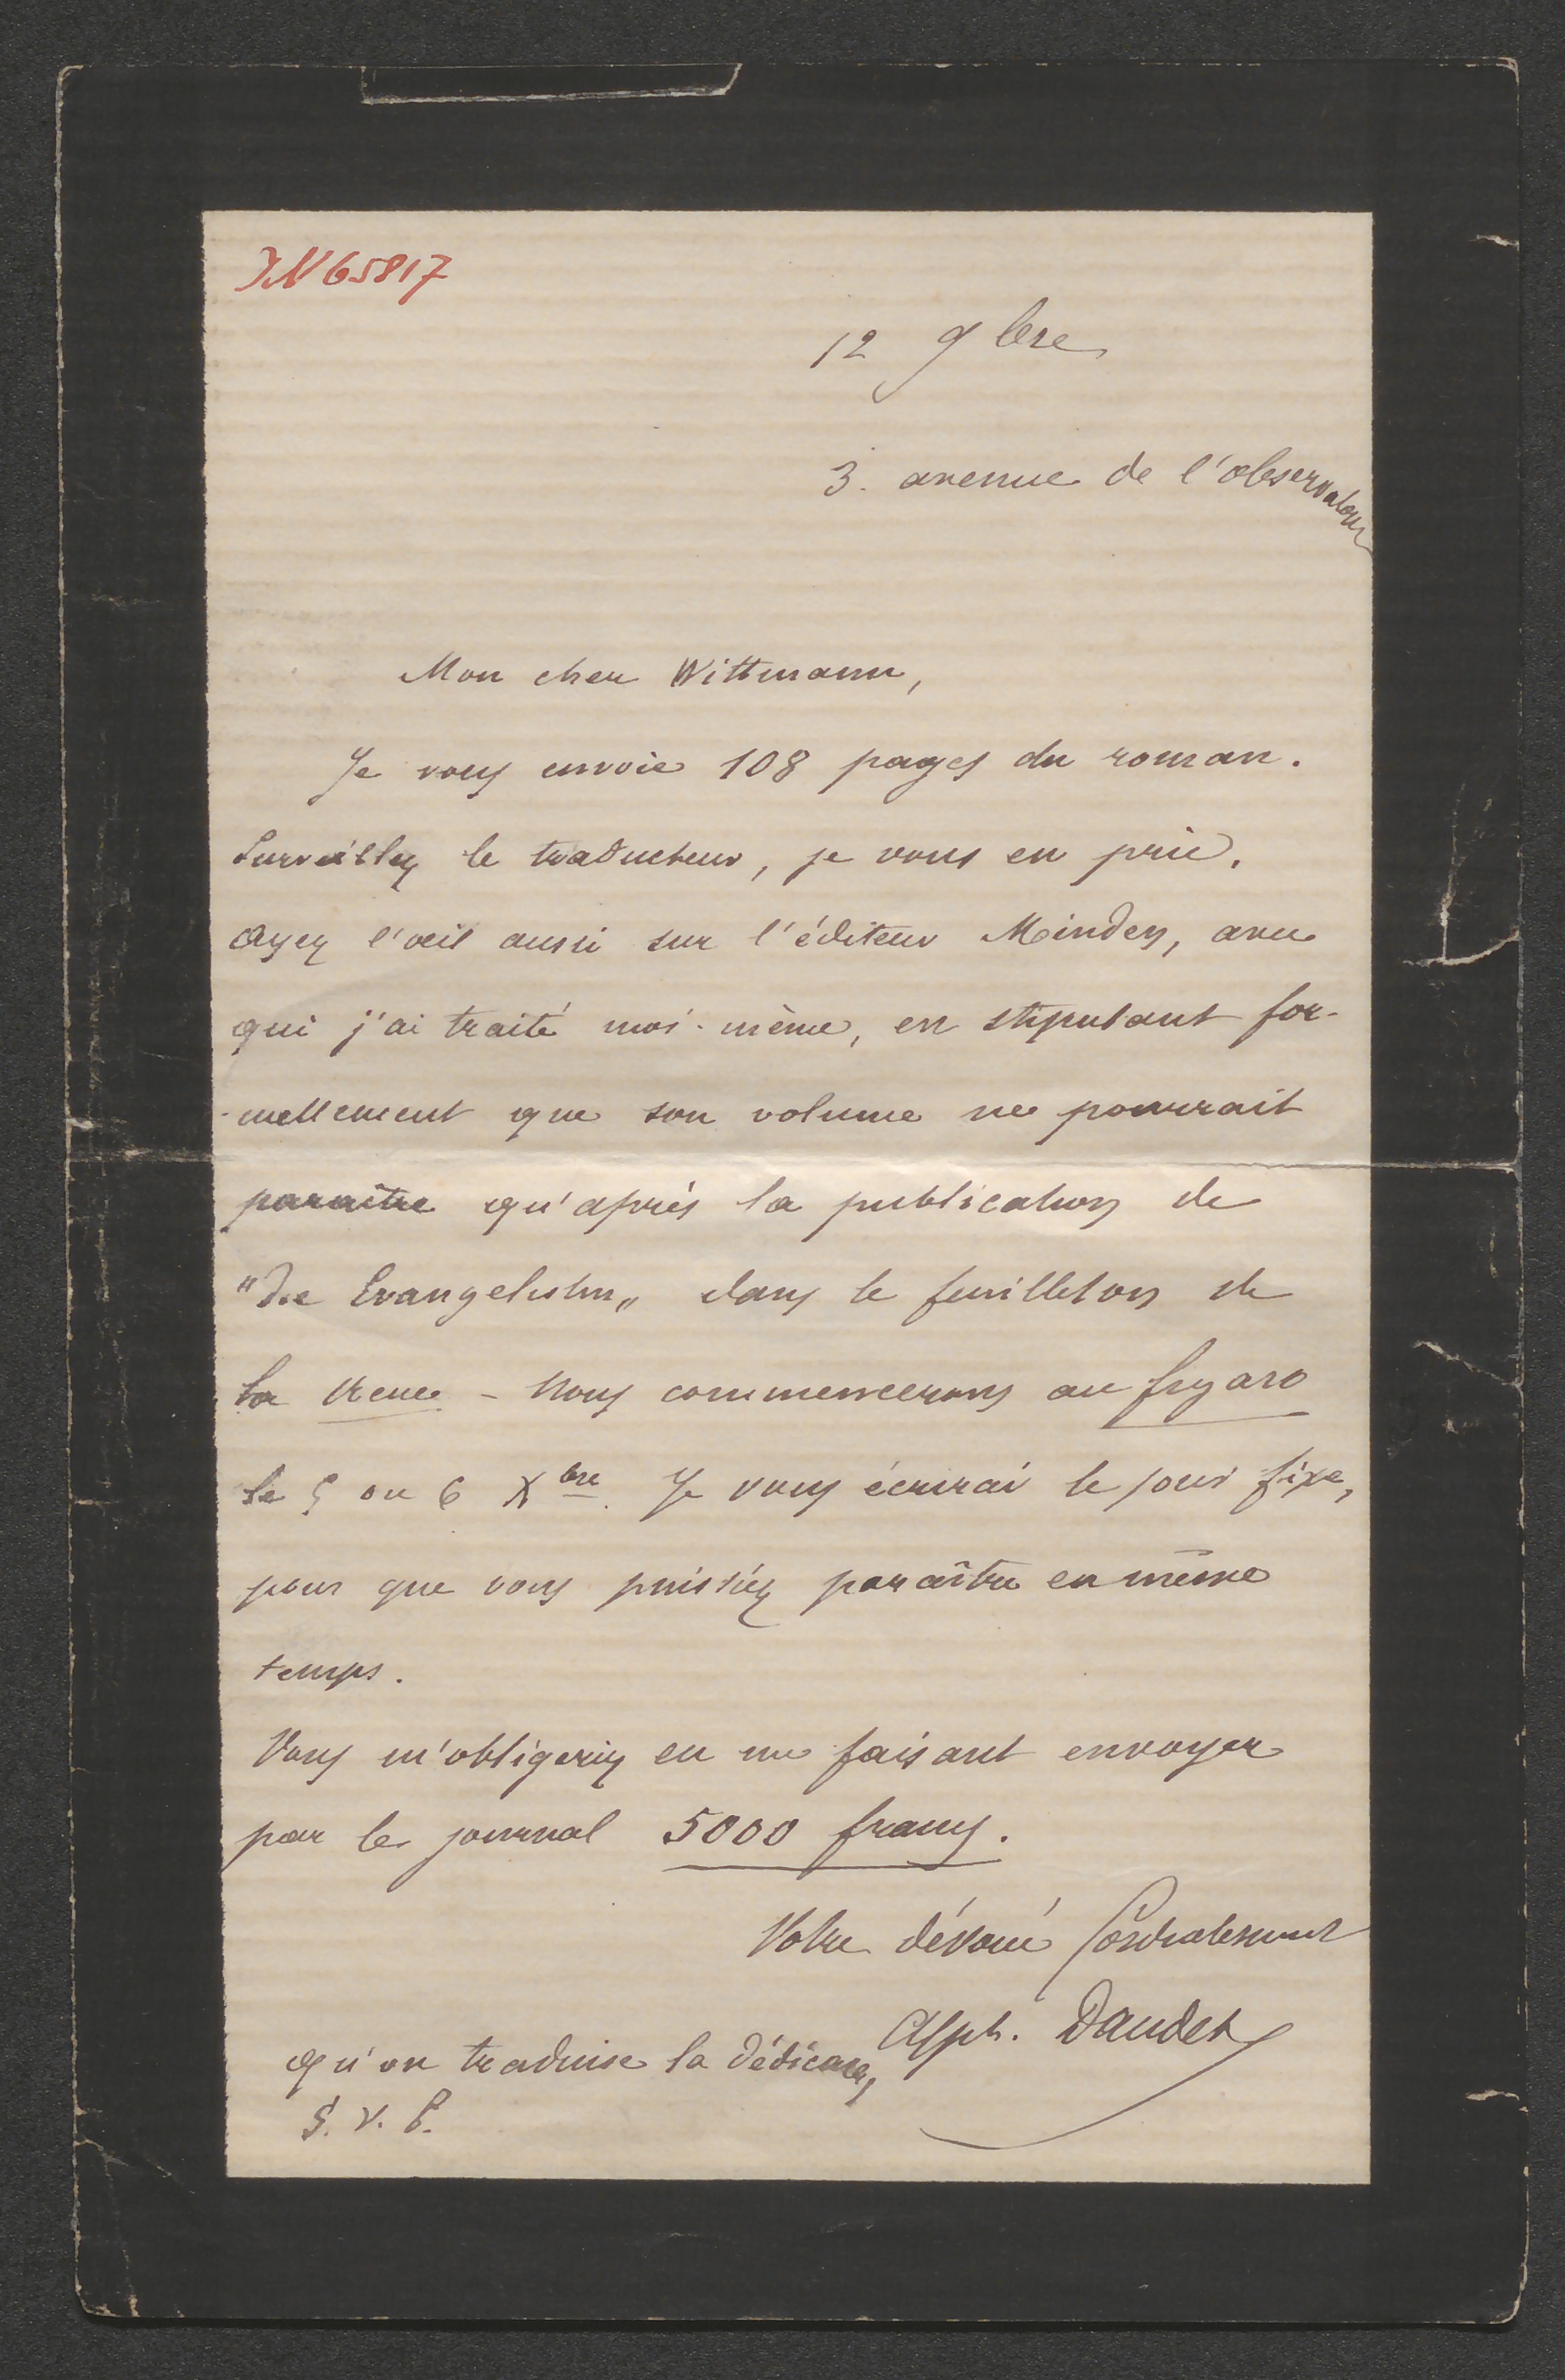 IN 65817
12 9bre
3. avenue de l'observatoire
Mon cher Wittmann,
Je vous envoie 108 pages du roman.
Surveillez le traducteur, je vous en prie.
Ayez l'œil aussi sur l'éditeur Minden, avec
qui j'ai traité moi-même, en stipulant for-
-mellement que son volume ne pourrait
paraître qu'après la publication de
"Die Evangelistin" dans le feuilleton de
la – Nous commencerons au figaro
le 5 ou 6 Xbre. Je vous écrirai le jour fixe,
pour que vous puissiez paraître en même
temps.
Vous m'obligeriez en me faisant envoyer
par le journal 5000 francs.
Votre dévoué Cordialement
Alph. Daudet
qu'on traduise la dédicace,
S. V. P.